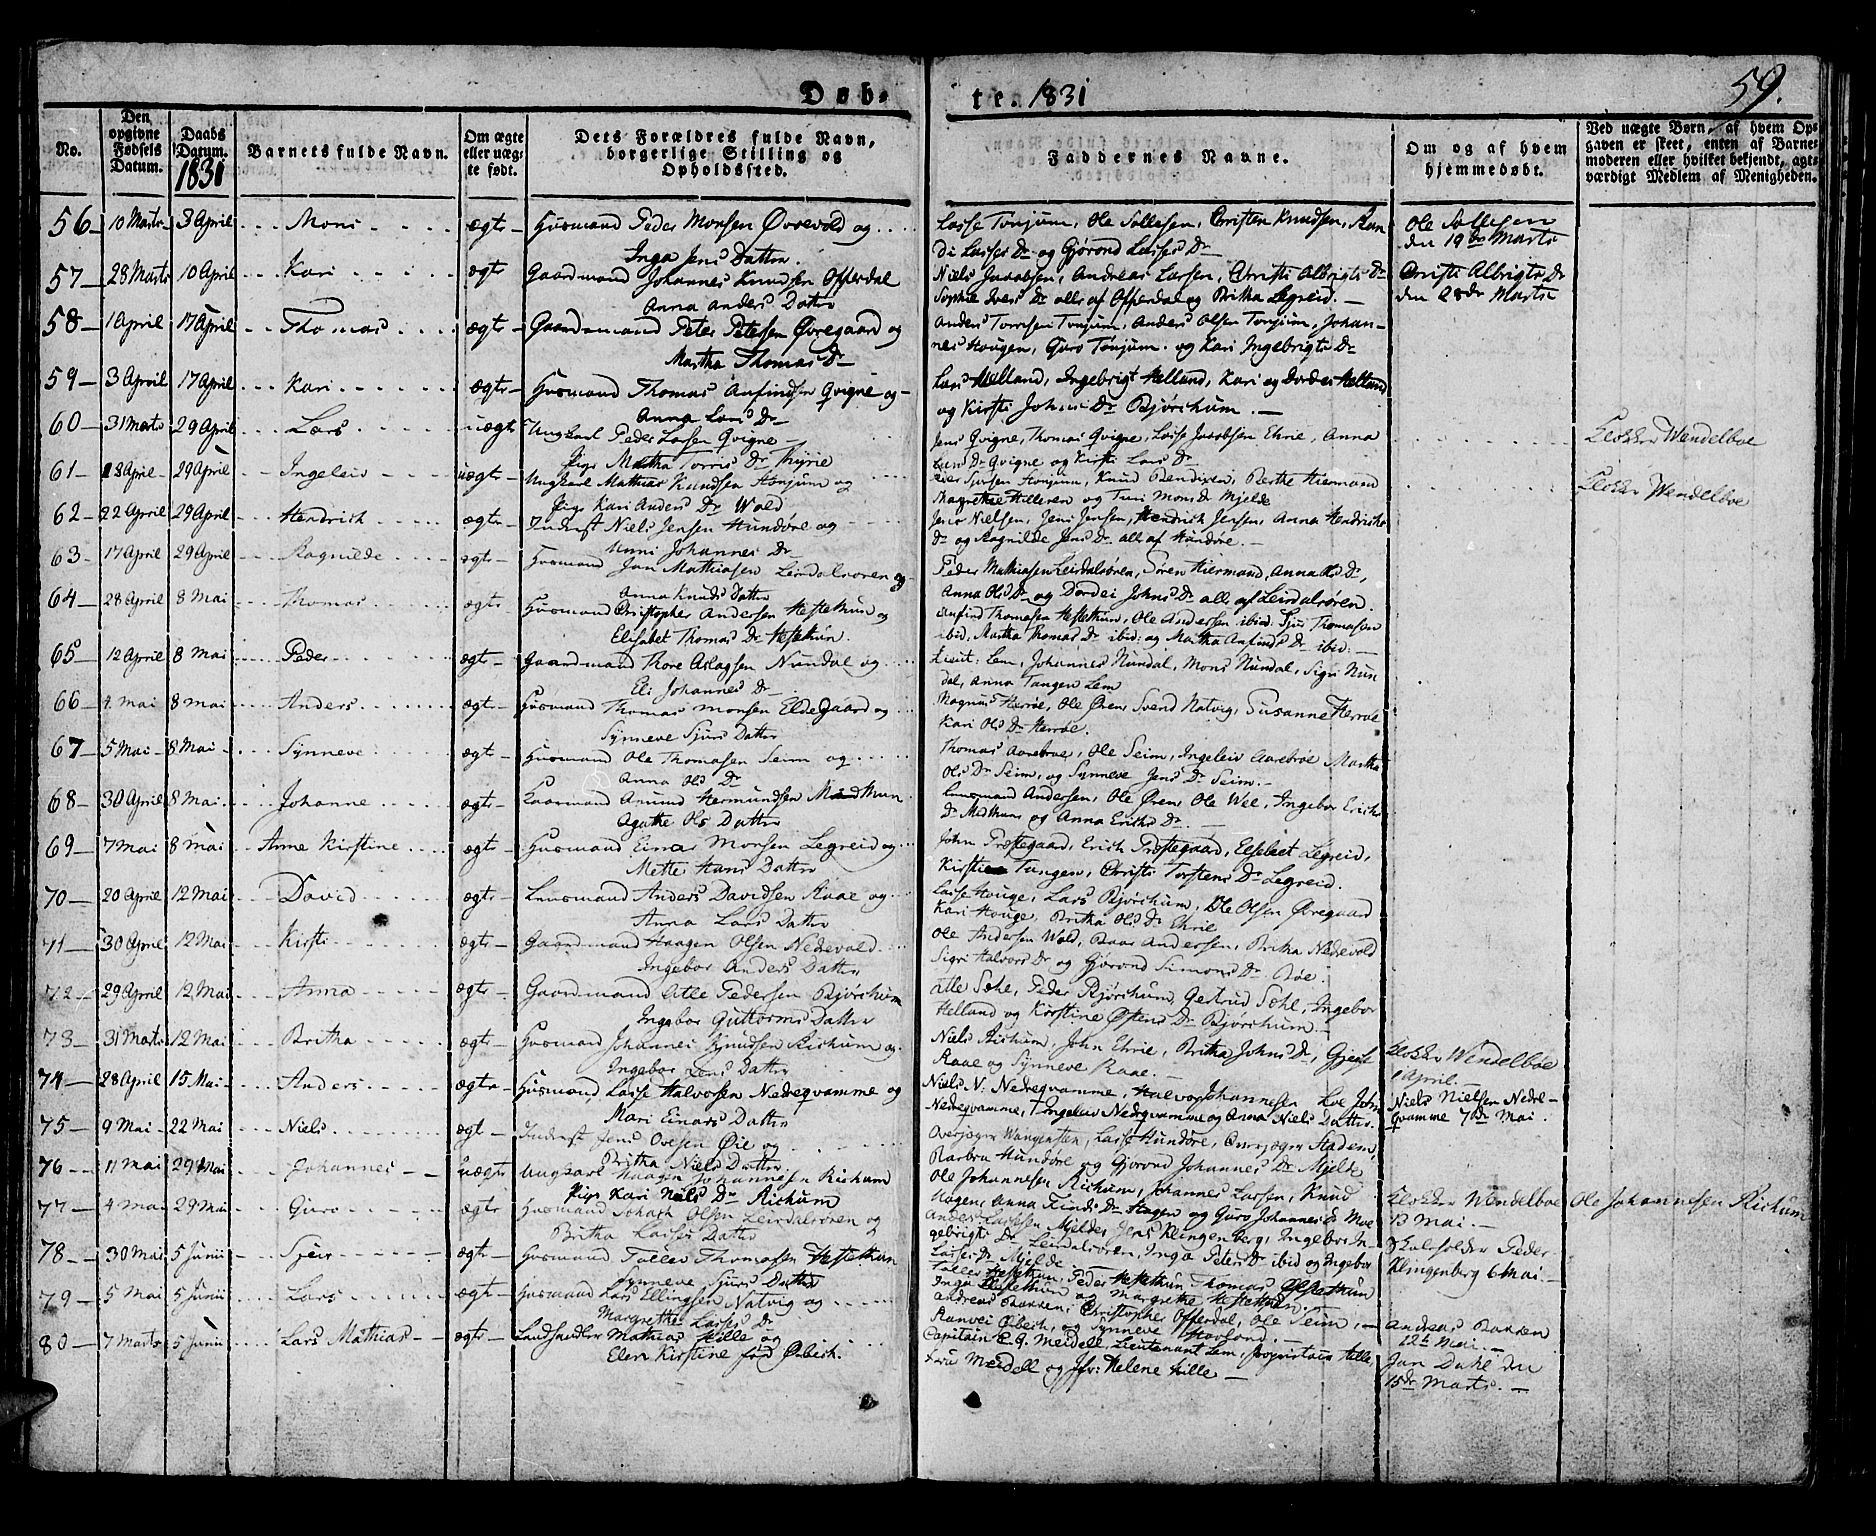 Døb-
te. 1831
59.
No.
Den opgivne Fødsels Datum.
Daabs Datum. 1831
Barnets fulde Navn.
Om ægte eller uægte født.
Dets Forældres fulde Navn, borgerlige Stilling og Opholdssted.
Faddernes Navne.
Om og af hvem hjemmedøbt.
Ved uægte Børn, af hvem Opgaven er skeet, enten af Barnemoderen eller hvilket bekjendt, agtværdigt Medlem af Menigheden.
56 10 Marts 3 April Mons ægte Huusmand Peder Monsen Øvrevold og
Inga Jens Datter
Lasse Tonjum, Ole Sollesen, Christen Knudsen, Ran-
di Lasses Dr og Gjørond Lasses Dr
Ole Sollesen
den 19de Marts
57 28 Marts 10 April Kari ægte Gaardmand Johannes Knudsen Offerdal
Anna Anders Datter
Niels Jacobsen, Andreas Larsen, Christi Albrigts Dr
Sophie Ivers Dr alle af Offerdal og Britha Legreid.
Christi Albrigts Dr
den 28de Marts
58 1 April 17 April Thomas ægte Gaardmand Peter Petersen Øvregaard og
Martha Thomas Dr
Anders Torresen Tonjum, Anders Olsen Tonjum, Johan-
nes Hougen, Guro Tonjum og Kari Ingebrigts Dr
59 3 April 17 April Kari ægte Huusmand Thomas Anfindsen Qvigne og
Anna Lars Dr
Lars Helland, Ingebrigt Helland, Kari og Dordei Helland
og Kirsti Johns Dr Bjørchum.
60 31 Marts 29 April Lars uægte Ungkarl Peder Lassen Qvigne
Pige Martha Torris Dr Thyrie
Jens Qvigne, Thomas Qvigne, Lasse Jacobsen Ehrie, Anna
Lars Dr Qvigne og Kirsti Lars Dr
Klokker Wendelboe
61 18 April 29 April Ingeleiv uægte Ungkarl Mathias Knudsen Honjum og
Pige Kari Anders Dr Wold
Honjum, Knud Bendixen, Berthe Hiermand
Magrethe Hilleren og Turi Mons Dr Mjelde
Klokker Wendelboe
62 22 April 29 April Hendrich ægte Inderst Niels Jensen Hundøre og
Unni Johannes Dr
Jens Nielsen, Jens Jensen, Hendrich Jensen, Anna Hendrichs
Dr og Ragnilde Jens Dr alle af Hundøre.
63 17 April 29 April Ragnilde ægte Huusmand Jan Mathiasen Leirdalsøren og
Anna Knuds Datter
Peder Mathiasen Leirdalsøren, Søren Hiermand, Anna Ols Dr,
Anna Ols Dr og Dordei Johns Dr alle af Leirdalsøren.
64 28 April 8 Mai Thomas ægte Huusmand Christopher Andersen Hestethun og
Elisabet Thomas Dr Hestethun.
Anfind Thomasen Hestethun, Ole Andersen ibid: Sjur Thomasen
ibid: Martha Thomas Dr ibid: og Martha Anfinds Dr ibid:
65 12 April 8 Mai Peder ægte Gaardmand Thore Aslagsen Nundal og
Eli Johannes Dr
Lieut: Lem, Johannes Nundal, Mons Nundal, Sigri Nun-
dal, Anna Tangen Lem
66 4 mai 8 mai Anders ægte Huusmand Thomas Monsen Eldegaard og
Synneve Sjurs Datter
Magnus Herrøe, Ole Øren, Svend Natvig, Susanne Herrøe
Kari Ols Dr Herrøe.
67 5 Mai 8 Mai Synneve ægte Huusmand Ole Thomasen Seim og
Anna Ols Dr
Thomas Aarebroe, Ole Seim, Ingeleiv Aarebrøe Martha
Ols Dr Seim, og Synneve Jens Dr Seim.
68 30 April 8 Mai Johanne ægte Gaardmand Amund Hermundsen Midthun
Agathe Ols Datter
Andersen, Ole Øren, Ole Wee, Ingebor Erichs
Dr Midthun og Anna Erichs Dr.
69 7 Mai 8 Mai Anne Kirstine ægte Huusmand Einar Monsen Legreid og
Mette Hans Datter
John Præstegaard, Erich Præstegaard, Elsebeet Legreid,
Kirstie Tangen, Christi Torstens Dr Legreid.
70 20 April 12 Mai David ægte Huusmand Anders Davidsen Raae og
Anna Lars Datter
Lasse Houge, Lars Bjørchum, Ole Olsen Øvregaard
Kari Houge, Britha Ols Dr Ehrie
71 30 April 12 Mai Kirsti ægte Gaardmand Haagen Olsen Nedrevold
Ingebor Anders Datter
Ole Andersen Wold, Baar Andersen, Britha Nedrevold
Sigri Halvors Dr og Gjørond Simons Dr Bøe
72 29 April 12 Mai Anna ægte Gaardmand Atle Pedersen Bjørchum
Ingebor Guttorms Datter
Atle Sohl, Peder Bjørchum, Gertrud Sohl, Ingebor
Helland og Kirstine Østens Dr Bjørchum.
73 31 Marts 12 Mai Britha ægte Huusmand Johannes Knudsen Richum og
Ingebor Jens Datter
Niels Richum, John Ehrie, Britha Johns Dr, Gjertr
Raae og Synneve Raae.
Klokker Wendelbøe
1 April.
74 28 April 15 Mai Anders ægte Huusmand Lasse Halvorsen Nedreqvamme og
Mari Einars Datter
Niels N. Nedreqvamme, Halvor Johannesen
Nedreqvamme, Ingeleiv Nedreqvamme og Anna Niels Datter
Niels Nielsen Nedre-
qvamme 7de Mai
75 9 Mai 22 Mai Niels ægt Inderst Jens Ovesen Øie og
Britha Niels Datter
Overjæger Wangensten, Lasse Hundøre, Overjæger Hadem,
Barbra Hundøre og Gjørond Johannes Dr Mjelde
76 11 Mai 29 Mai Johannes uægte Ungkarl Haagen Johannesen Richum
Pige Kari Niels Dr Richum
Ole Johannesen Richum, Johannes Larsen, Knud
Hagen, Anna Finds Dr Hagen og Guro Johannes Dr Moe
Klokker Wendelboe
13 Mai.
Ole Johannesen Richum
77 4 Mai 29 Mai Guro ægte Huusmand Johan Olsen Leirdalsøren og
Britha Lasses Datter
Anders Larsen Mjelde, Jens Klingenberg, Ingebor In-
gebrigts Dr Leirdalsøren, Inga Peters Dr ibid og Ingebor
Lasses Dr Mjelde
Skoleholder Peder
Klingenberg 6 Mai.
78 30 Mai 5 Junii Sjur ægte Huusmand Tolleiv Thomasen Hestethun
Synneve Sjurs Datter
Hestethun, Peder Hestethun, Thomas Hestethun
Inga Hestethun og Margrethe Hestethun.
79 5 Mai 5 Junii Lars ægte Huusmand Lars Ellingsen Natvig og
Margrethe Lasses Dr
Andreas Bakken, Christopher Offerdal, Ole Seim,
Ranvei Ørbech, og Synneve
Andreas Bakken
12te Mai.
80 7 Marts 5 Junii Lars Mathias ægte Landhandler Mathias Hille og
Elen Kirstine fød Ørbech.
Capitain E. G. Meidell, Lieutenant Lem, Proprietair Hille,
Frue Meidell og Jfr: Helene Hille
Jan Dahl den
15de Marts.